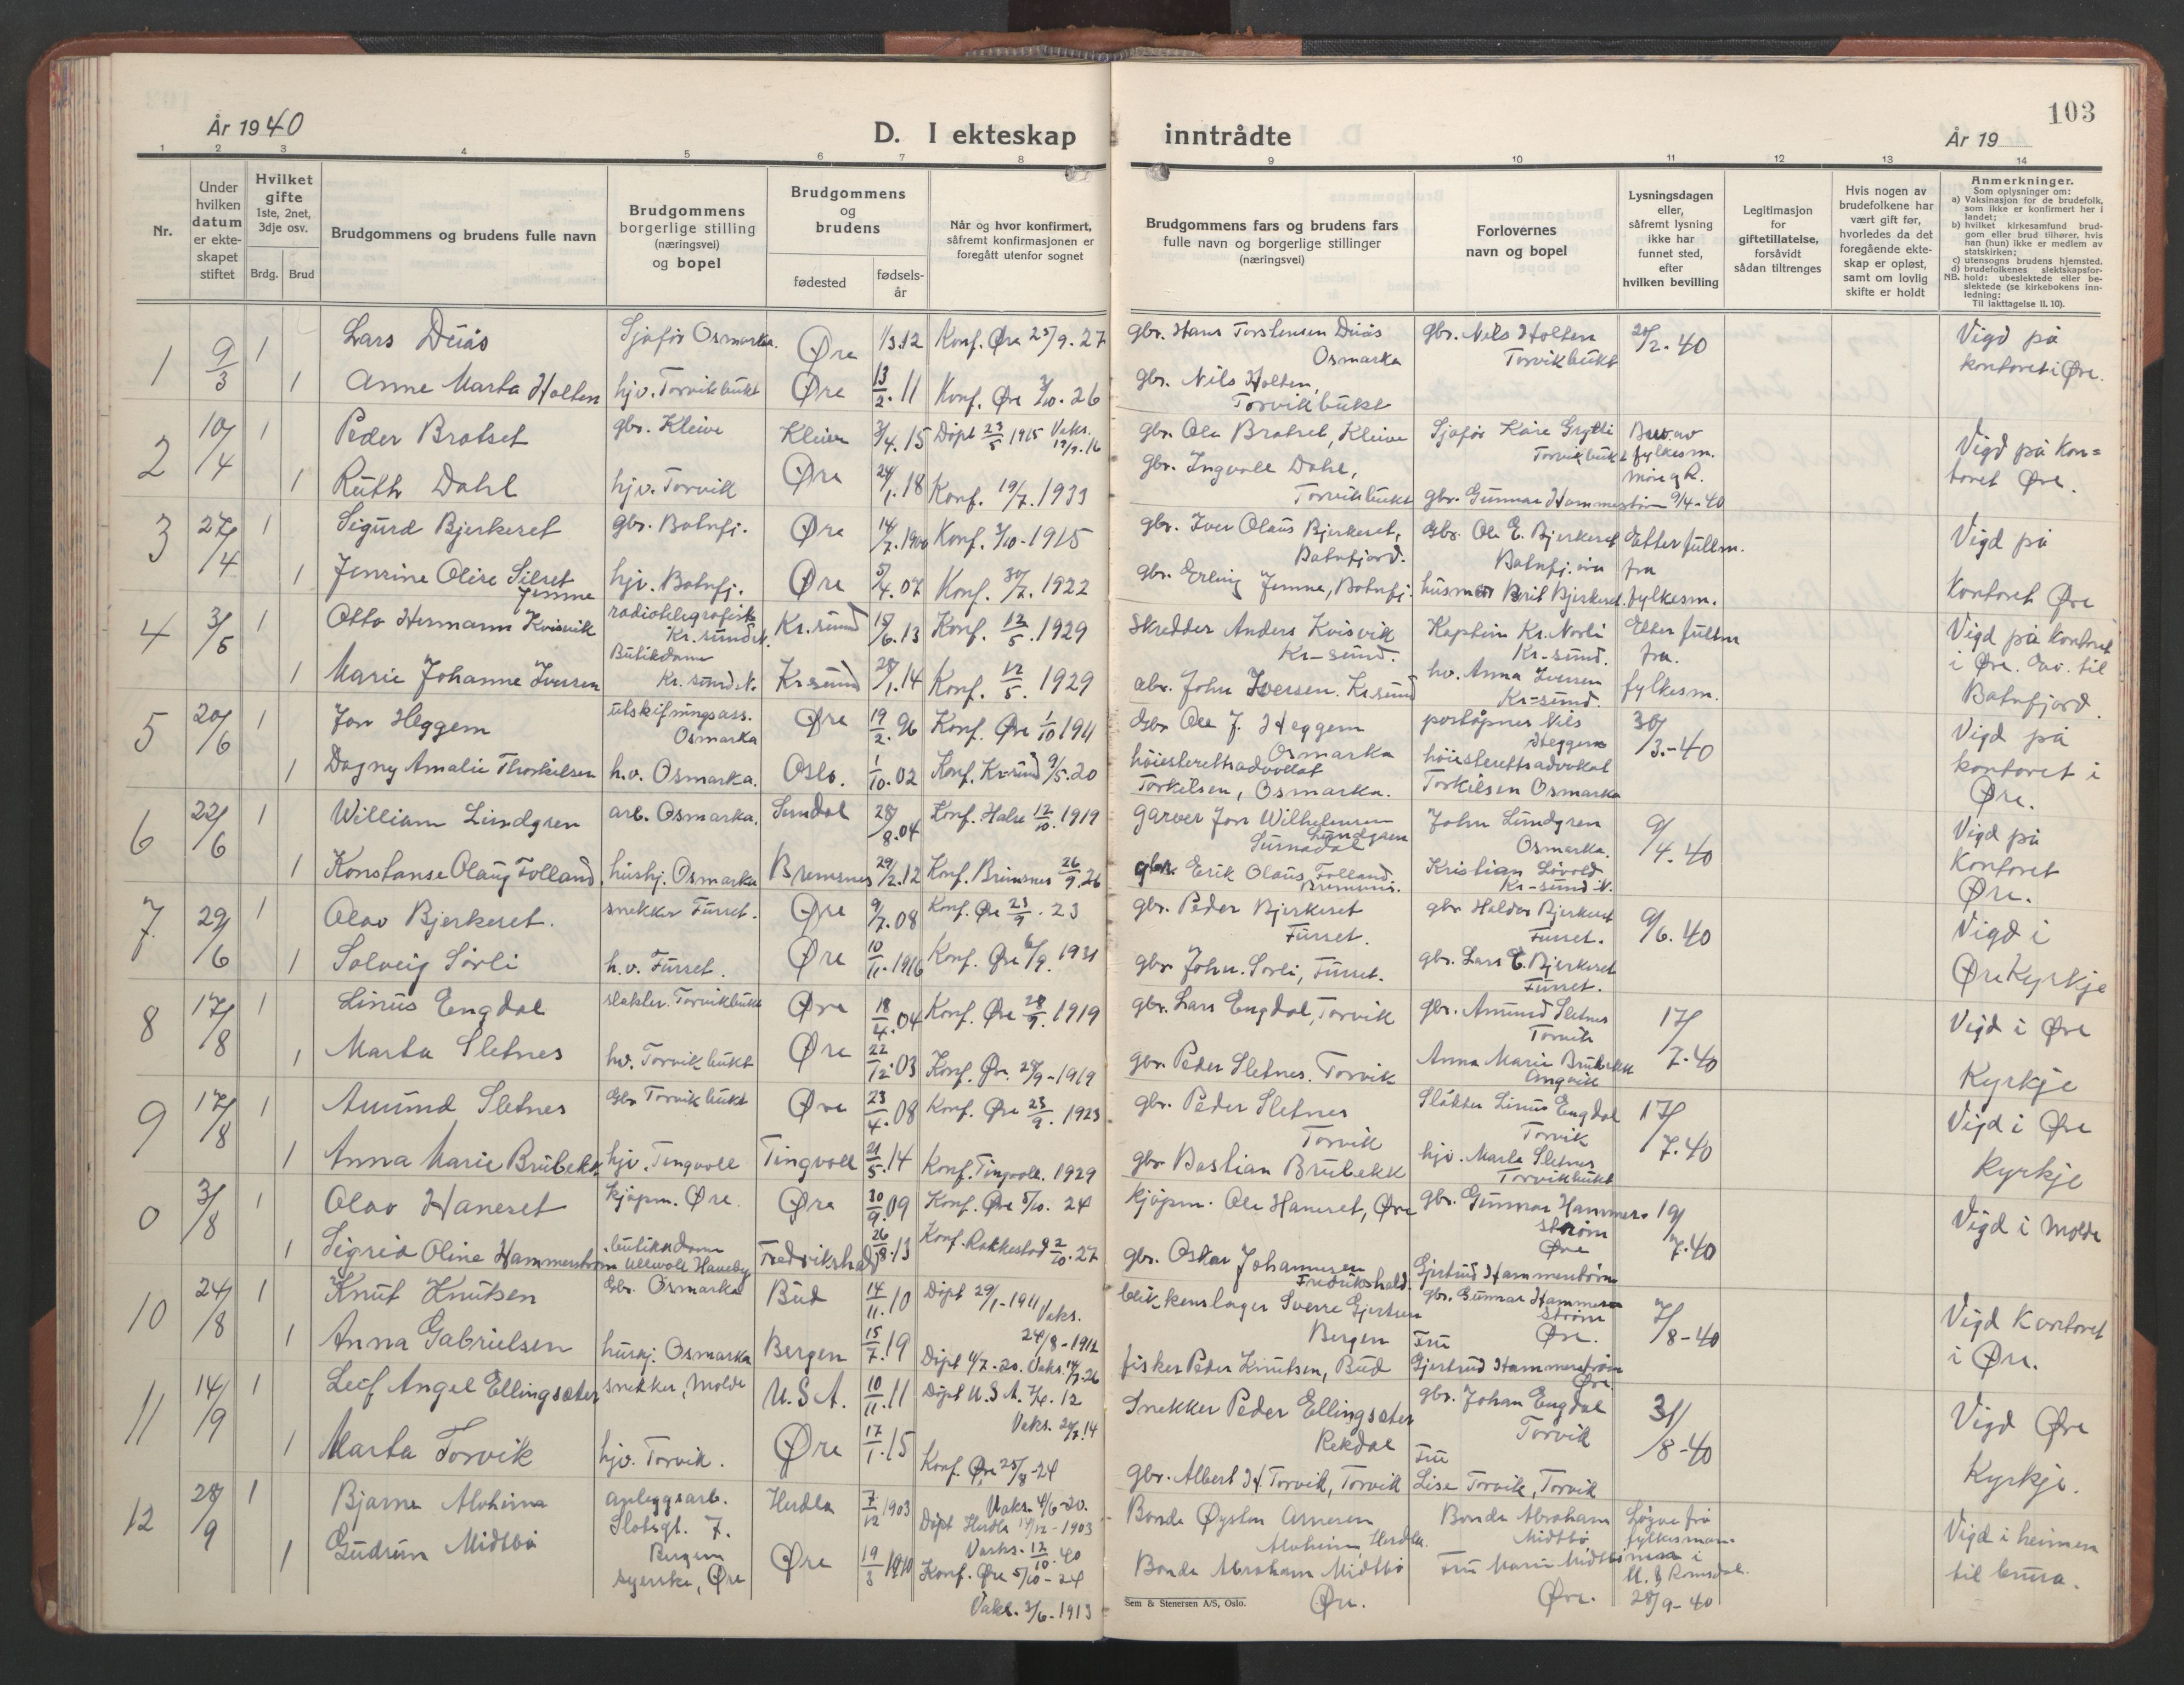 103
År 1940
D. I ekteskap inntrådte
År 19
1 2 3 4 5 6 7 8 9 10 11 12 13 14
Nr.
Under hvilken datum er ekteskapet stiftet
Hvilket gifte 1ste, 2net, 3dje osv.
Brdg. Brud
Brudgommens og brudens fulle navn
Brudgommens borgerlige stilling (næringsvei) og bopel
Brudgommens og brudens
fødested
fødselsår
Når og hvor konfirmert, såfremt konfirmasjonen er foregått utenfor sognet
Brudgommens fars og brudens fars fulle navn og borgerlige stillinger (næringsvei)
Forlovernes navn og bopel
Lysningsdagen eller, såfremt lysning ikke har funnet sted, efter hvilken bevilling
Legitimasjon for giftetillatelse, forsåvidt sådan tiltrenges
Hvis nogen av brudefolkene har vært gift før, hvorledes da det foregående ekteskap er opløst, samt om lovlig skifte er holdt
Anmerkninger.
Som oplysninger om:
a) Vaksinasjon for de brudefolk, som ikke er konfirmert her i landet;
b) hvilket kirkesamfund brudgom eller brud tilhører, hvis han (hun) ikke er medlem av statskirken;
c) utensogns brudens hjemsted.
d) brudefolkenes slektskapsforhold: ubeslektede eller beslektede (se kirkebokens innledning:
NB.
Til iakttagelse II, 10).
1 9/3 1 Lars Duås Sjåfør Osmarka. Øre 1/3.12 Konf. Øre 25/9.27 gbr. Hans Torstensen Duås Osmarka gbr. Nils Holten Torvikbukt 20/2.40 Vigd på kontoret i Øre.
1 Anne Marta Holten hjv. Torvikbukt Øre 13/2.11 Konf. Øre 3/10.26 gbr. Nils Holten, Torvikbukt
2 10/4 1 Peder Bratset gbr. Kleive Kleive 3/4.15 Døpt 23/5 1915 Vaks. 19/9.16 gbr. Ole Bratset, Kleive Sjåfør Kåre Grytti Torvikbukt Bev. av fylkesm. Møre og R. 9/4-40 Vigd på kontoret Øre.
1 Ruth Dahl hjv. Torvik Øre 24/1.18 Konf. 19/7.1933 gbr. Ingvall Dahl, Torvikbukt gbr. Gunnar Hammerstrøm
3 27/4 1 Sigurd Bjerkeset gbr. Batnfj. Øre 14/7.1900 Konf. 3/10-1915 gbr. Iver Olaus Bjerkeset, Batnfjord. Gbr. Ole E. Bjerkeset Batnfj.øra Etter fullm. fra fylkesm. Vigd på kontoret Øre
1 Jensine Olise Silset Jemne hjv. Batnfj. Øre 5/4.07 Konf. 30/7.1922 gbr. Erling Jemne, Batnfj. husmor Berit Bjerkeset.
4 3/5 1 Otto Hermann Kvisvik radiotelegrafist Kr.sund N. Kr.sund 15/6.13 Konf. 12/5.1929 Skredder Anders Kvisvik Kr-sund. Kaptein Kr. Norli Kr-sund. Etter fullm fra. fylkesm. Vigd på kontoret i Øre. Ov. til Batnfjord.
1 Marie Johanne Iversen Butikdame Kr.sund N. Kr.sund 28/1.14 Konf. 12/5.1929 abr. John Iversen. Kr.sund hv. Anna Iversen Kr-sund.
5 20/6 1 Jon Heggem utskiftningsass. Osmarka Øre 19/2.96 Konf. Øre 1/10 1911 Gbr Ole J. Heggem Osmarka poståpner Nils Heggem 30/3.-40 Vigd på kontoret i Øre.
1 Dagny Amalie Thorkilsen h.v. Osmarka. Oslo. 1/10.02 Konf. Kr.sund 9/5.20 høiesterettsadvokat Torkilsen, Osmarka. høiesterettsadvokat Torkilsen Osmarka
6 22/6 1 William Lundgren arb. Osmarka. Sundal 28/8.04 Konf. Halse 12/10.1919 garver Jon Wilhelmsen Lundgren Surnadal John Lundgren Osmarka. 9/4.40 Vigd på Kontoret Øre.
1 Konstanse Olaug Folland. hushj. Osmarka Bremsnes 29/2.12 Konf. Bremsnes 26/9.26 gbr. Erik Olaus Folland Bremsnes. Kristian Løvold Kr-sund N.
7. 29/6 1 Olav Bjerkeset. snekker Furset. Øre 9/7.08 Konf. Øre 23/9.23 gbr. Peder Bjerkeset Furset. gbr Haldor Bjerkeset Furset. 9/6.40 Vigd i Øre Kyrkje
1 Solveig Sørli h.v. Furset. Øre 10/11.1916 Konf. Øre 6/9.1931 gbr. John. Sørli, Furset. gbr. Lars E. Bjerkeset Furset.
8 17/8 1 Linus Engdal slakter. Torvikbukt Øre 18/4.04 Konf. Øre 28/9.1919 gbr. Lars Engdal, Torvik gbr. Amund Sletnes Torvik 17/7.40 Vigd i Øre Kyrkje
1 Marta Sletnes hv. Torvikbukt Øre 22/12.03 Konf. Øre. 28/9-1919 gbr. Peder Sletnes. Torvik Anna Marie Brubekk Angvik
9 17/8 1 Amund Sletnes Gbr Torvikbukt Øre 23/4.08 Konf. Øre 23/9.1923 gbr. Peder Sletnes Torvik Slakter Linus Engdal Torvik 17/7.40 Vigd i Øre Kyrkje
1 Anna Marie Brubekk hjv. Tingvoll Tingvoll 21/5.14 Konf. Tingvoll. 1929 gbr Bastian Brubekk hjv. Marta Sletnes Torvikbukt
0 3/8 1 Olav Haneset kjøpm. Øre. Øre 30/9.09 Konf. Øre 5/10.24 kjøpm. Ole Haneset, Øre gbr. Gunnar Hammerstrøm Øre 19/7.40 Vigd i Molde
1 Sigrid Oline Hammerstrøm butikkdame Ullevål Haveby Fredrikshald 26/8.13 Konf. Rakkestad 2/10.27 gbr. Oskar Johannesen Fredrikshald. Gjertrud Hammerstrøm
10 24/8 1 Knut Knutsen Gbr. Osmarka Bud 14/11.10 Døpt 29/1-1911 Vaks. 24/8-1912 blikkenslager Sverre Gjertsen Bergen gbr. Gunnar Hammerstrøm Øre. 7/8-40 Vigd Kontoret i Øre.
1 Anna Gabrielsen hushj. Osmarka Bergen 15/7.19 Døpt 4/7-20. Vaks. 14/7.26 fisker Peder Knutsen, Bud Fru Gjertrud Hammerstrøm Øre.
11 14/9 1 Leif Angel Ellingsæter snekker, Molde U.S.A. 10/11.11 Døpt U.S.A. 7/4.12 Vaks. 24/7.14 Snekker Peder Ellingsæter Rekdal gbr. Johan Engdal Torvik 31/8-40 Vigd Øre Kyrkje.
1 Marta Torvik hjv. Torvik. Øre 17/1.15 Konf. Øre 25/8-29 gbr. Albert H. Torvik, Torvik Fru Lise Torvik, Torvik
12 28/9 1 Bjarne Alvheim anleggsarb. Slotsgt. 7. Bergen Herdla 7/12 1903 Vaks. 4/6-20. Døpt Herdla 14/12-1903 Bonde Øystein Arnesen Alvheim, Herdla. Bonde Abraham Midtbø Løyve frå fylkesmannen i M. & Romsdal. 28/9-40 Vigd i heimen til brura.
1 Gudrun Midtbø syerske, Øre Øre 19/3 1910 Vaks. 12/10.40 Konf. Øre 5/10-24 Vaks. 3/6-1913 Bonde Abraham Midtbø Øre. Fru Marie Midtbø Øre.
Sem & Stenersen A/S, Oslo.